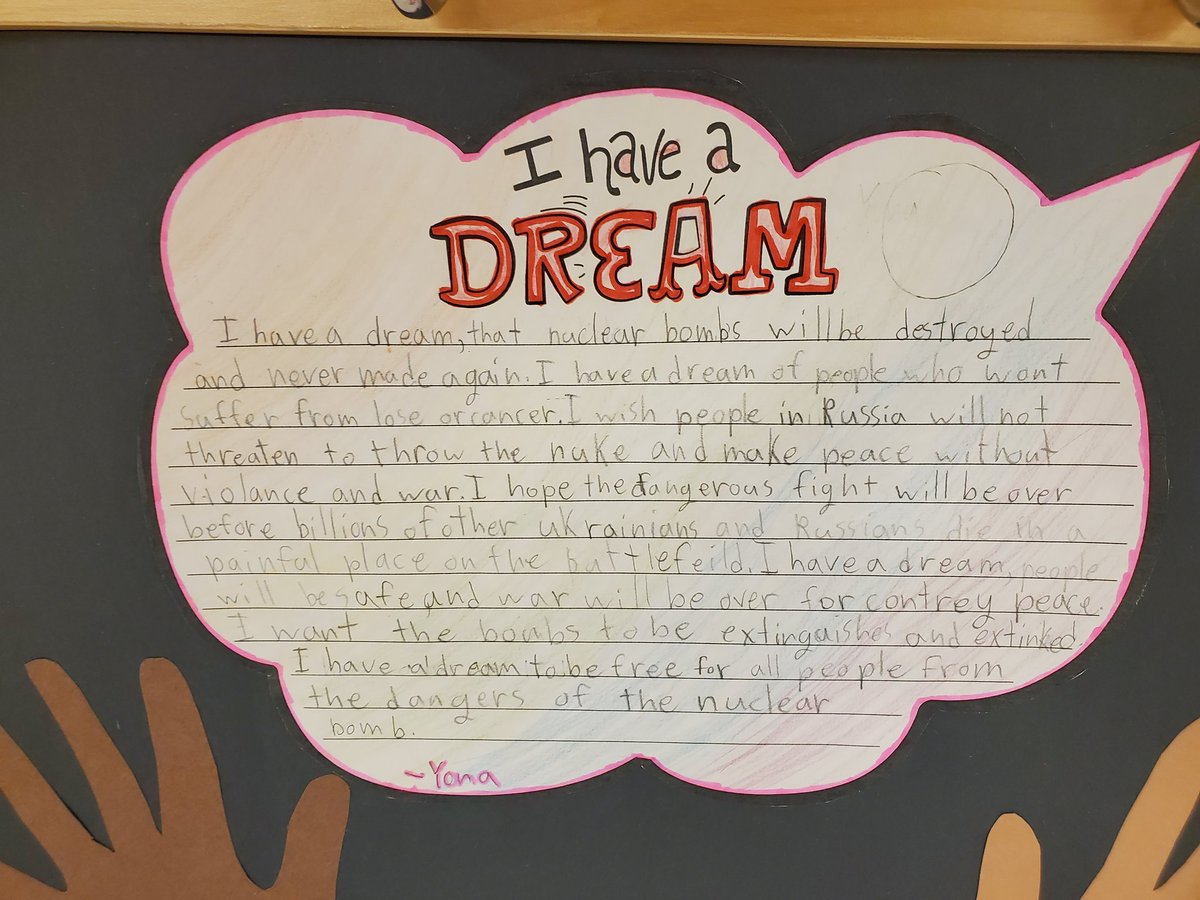 I have a
DREAM
I have a dream, that nuclear bombs will be destroyed
and never made again. I have a dream of people who wont
suffer from lose or cancer. I wish people in Russia will not
threaten to throw the nuke and make peace without
violance and war. I hope the dangerous fight will be over
before billions of other ukrainians and Russians die in a
painful place on the battlefeild. I have a dream, people
will be safe and war will be over for contrey peace.
I want the bombs to be extinguishes and extinked
I have a dream to be free for all people from
the dangers of the nuclear
bomb.
~Yona